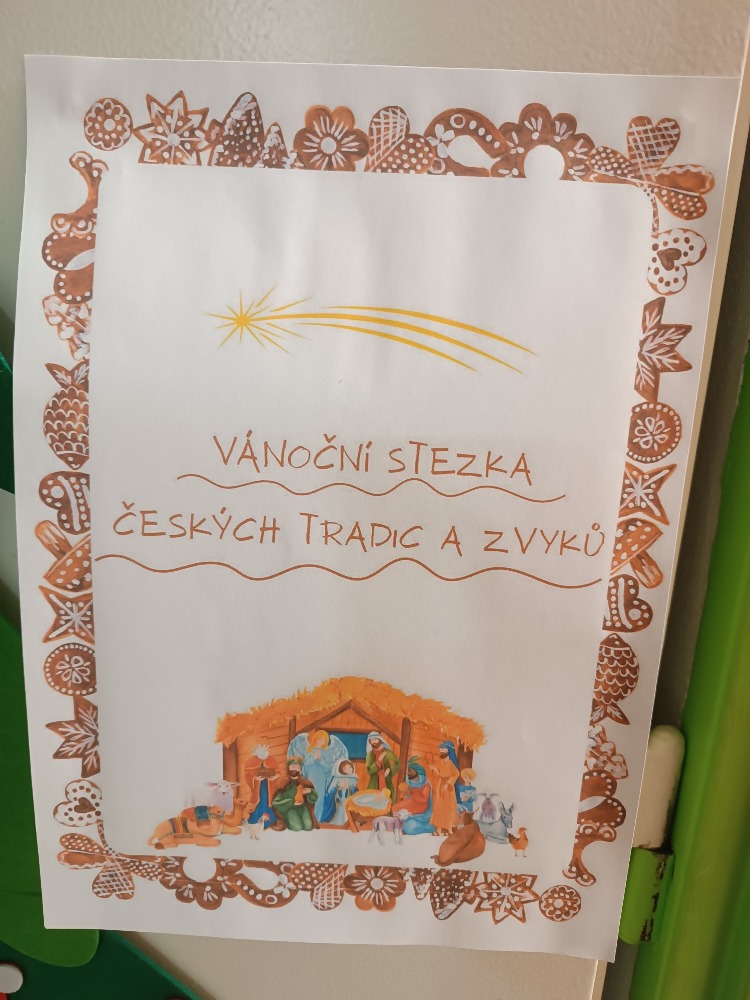 VÁNOČNÍ STEZKA
ČESKÝCH TRADIC A ZVYKŮ